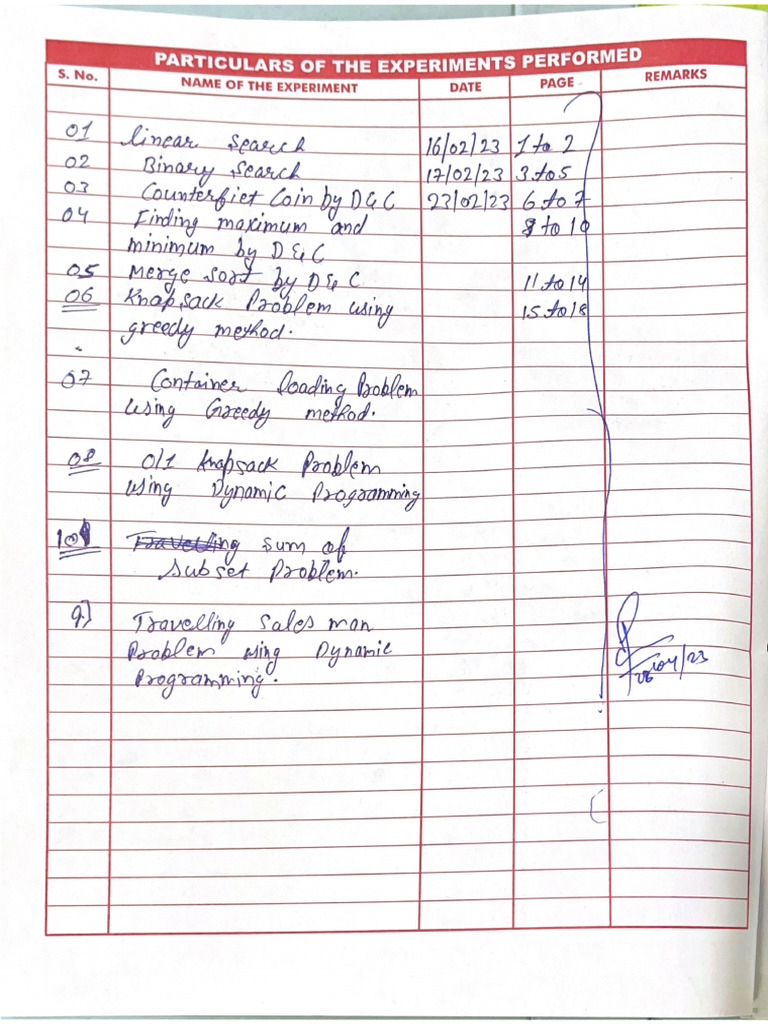 PARTICULARS OF THE EXPERIMENTS PERFORMED
S. No. NAME OF THE EXPERIMENT DATE PAGE REMARKS
01 linear Search 16/02/23 1 to 2
02 Binary Search 17/02/23 3 to 5
03 Counterfiet Coin by D&C 23/02/23 6 to 7
04 Finding maximum and 8 to 10
minimum by D&C
05 Merge sort by D&C 11 to 14
06 Knapsack Problem using 15 to 18
greedy method.
07 Container loading Problem
using Greedy method.
08 0/1 Knapsack Problem
using Dynamic Programming
10 Travelling sum of
subset Problem.
9.) Travelling Sales man
Problem using Dynamic
Programming.